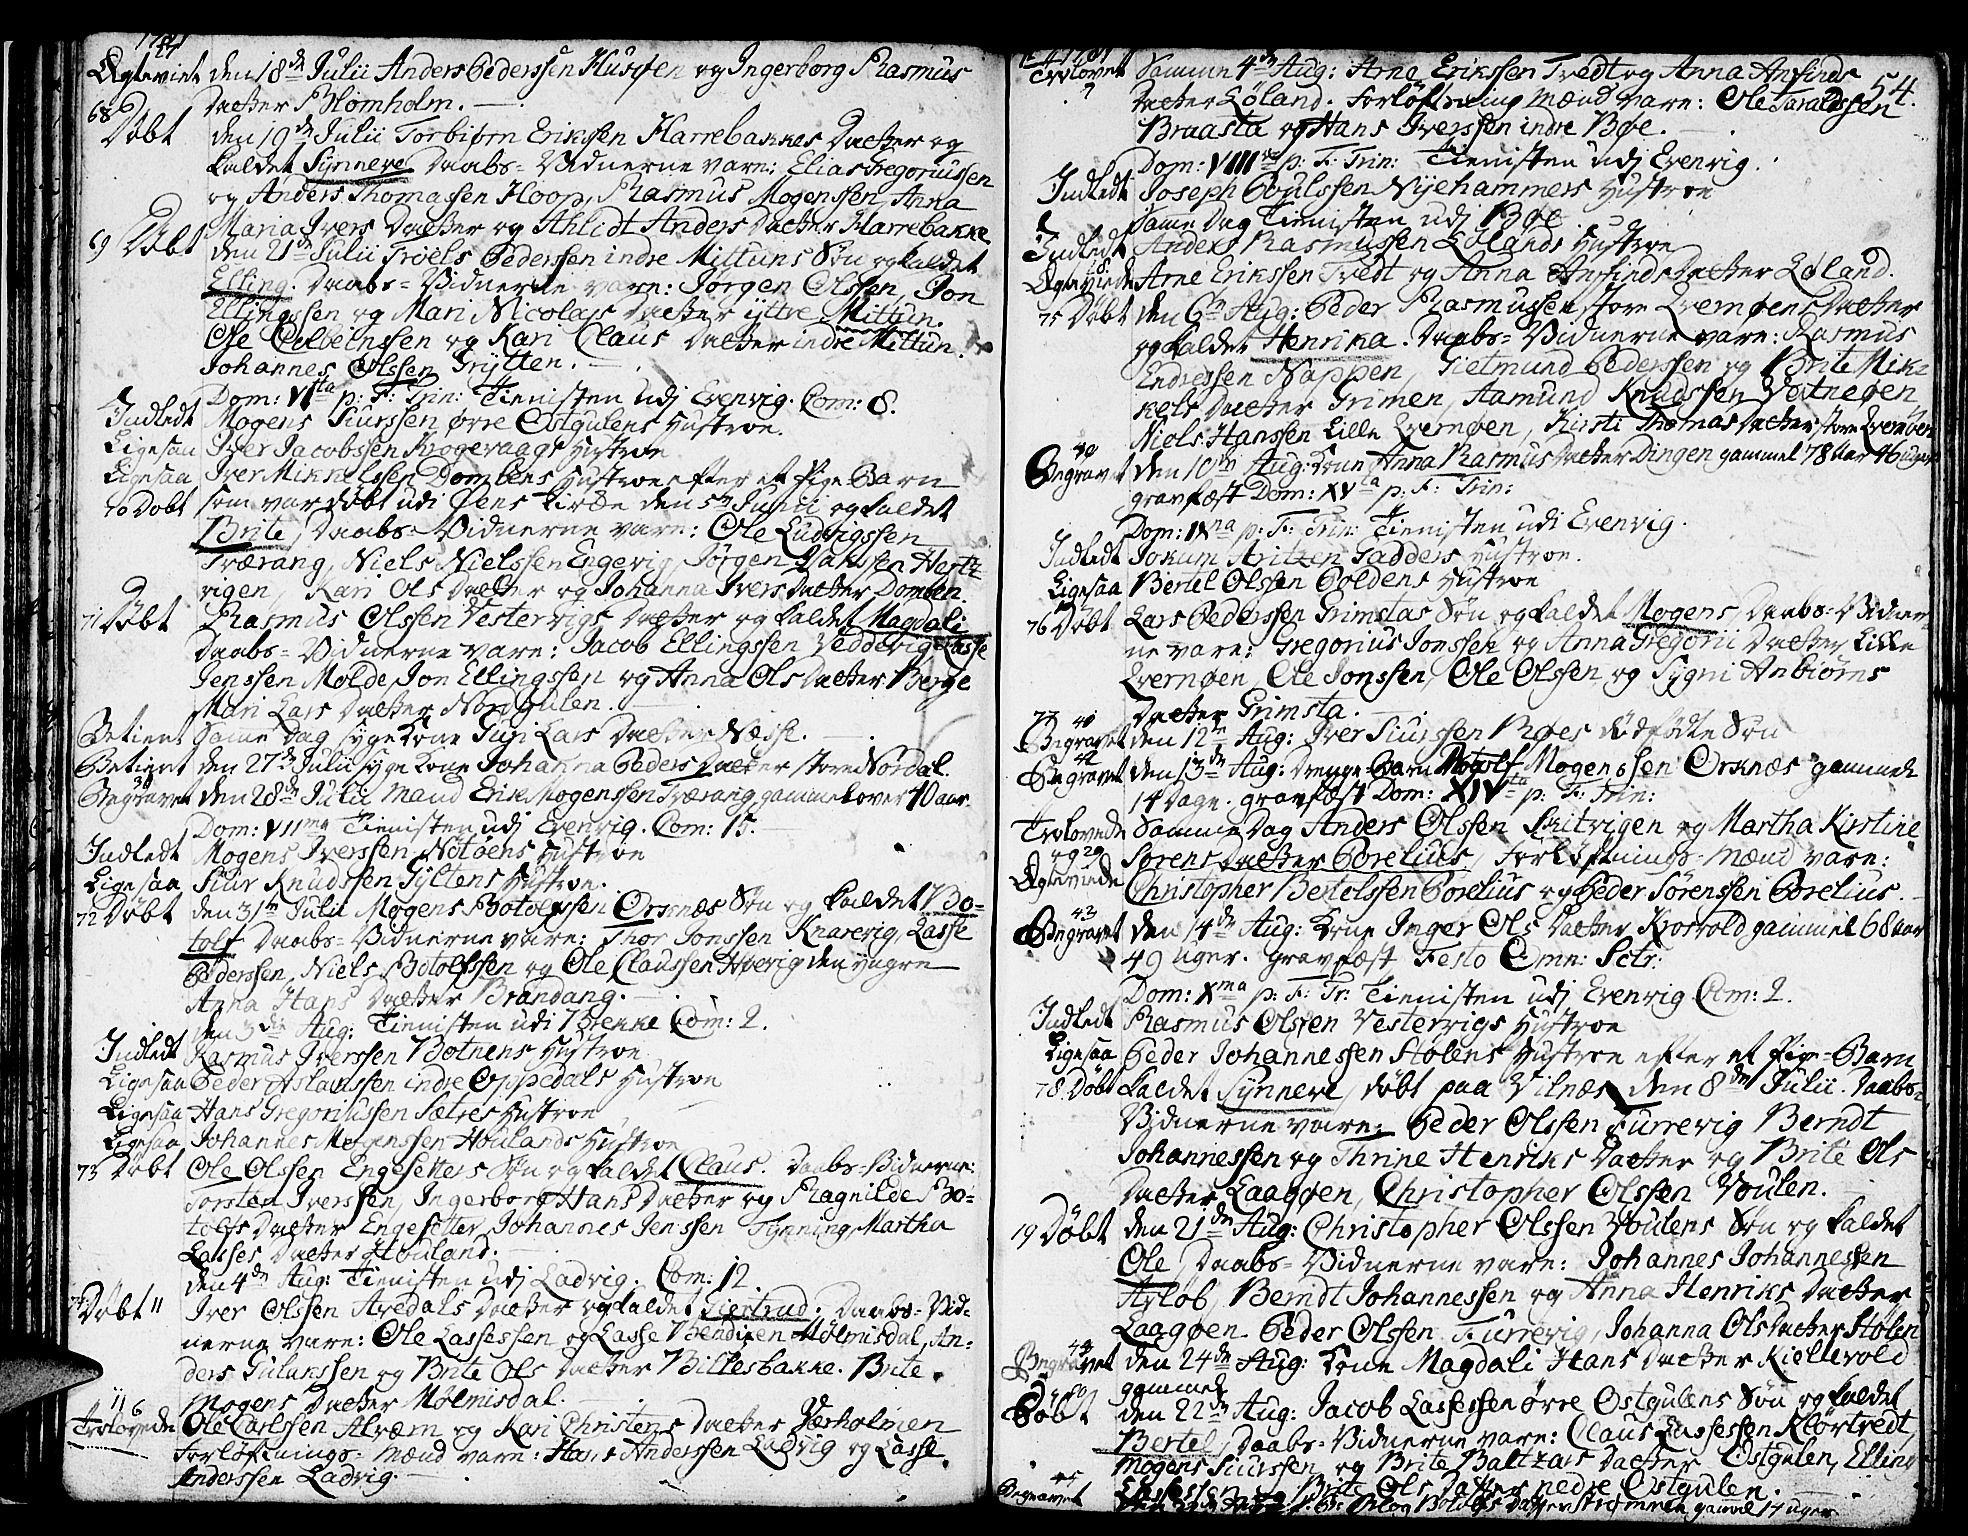 Ægteviet den 18de Julii Anders Pederssen Hussen og Ingerborg Rasmus
Datter Blomholm.
68 Døbt den 19de Julii Torbiørn Erikssen Harrebakkes Datter og
kaldet Synneve Daabs-Vidnerne vare: Elias Gregoriussen
og Anders Thomassen Hoop, Rasmus Mogenssen, Anna
Maria Ivers Datter og Ahlidt Anders Datter Harrebakke
69 Døbt den 21de Julii Troels Pederssen indre Mittuns Søn og kaldet
Elling. Daabs-Vidnerne vare: Jørgen Olssen, Jon
Ellingssen og Mari Nicolais Datter ÿttre Mittun.
Ole Erbeinssen og Kari Claus Datter indre Mittun.
Johannes Olssen Grÿtten.
Dom: VIta p: F: Trin: Tienisten udj Evenvig. Com: 8.
Indledt Mogens Siurssen ørre Østgulens Hustroe.
Ligesaa Iver Jacobssen Krogevaags Hustroe
Ligesaa Iver Mikkelssen Dombens Hustroe efter et Pige Barn
70 Døbt som var døbt udi Gens Kirke den 5te Junii og kaldet
Brite, Daabs-Vidnerne vare: Ole Ludvigssen
Trærang, Niels Nielssen Engevig, Jørgen Iakssen Hert-
vigen, Kari Ols Datter og Johanna Ivers Datter Domben.
71 Døbt Rasmus Olssen Vestervigs Datter og kaldet Magdali
Daabs-Vidnerne vare: Jacob Ellingssen Veddevig, Lasse
Jenssen Molde, Jon Ellingssen og Anna Ols Datter Berge
Mari Lars Datter Nordgulen.
Betient samme Dag syge Kone Guri Lars Datter Næsse.
Betient den 27de Julii syge Kone Johanna Peders Datter store Nordal.
Begravet den 28de Julii Mand Erik Mogenssen Trærang gammel over 70 aar.
Dom: VIIma Tienisten udj Evenvig. Com: 15.
Indledt Mogens Iverssen Nötöens Hustroe
Ligesaa Siur Knudssen Sÿltens Hustroe.
72 Døbt den 31te Julii Mogens Botolfssen Orknæs Søn og kaldet Bo-
tolf Daabs-Vidnerne vare: Thor Jonssen Knarevig, Lasse
Pederssen, Niels Botolfssen og Ole Claussen Hverig den yngre
Anna Hans Datter Brandang.
den 3die Aug: Tienisten udi Brekke Com: 2.
Indledt Rasmus Iverssen Botnens Hustroe
Ligesaa Peder Aslakssen indre Oppedals Hustroe
Ligesaa Hans Gregoriussen Sætres Hustroe
Ligesaa Johannes Mogenssen Houlands Hustroe
73 Døbt Ole Olssen Engesetters Søn og kaldet Claus. Daabs-Vidnerne:
Torsten Iverssen, Ingerborg Hans Datter og Ragnilde Bo-
tolfs Datter Engesetter, Johannes Jenssen Tÿnning, Martha
Lasses Datter Houland.
den 4de Aug: Tienisten udj Ladvig. Com: 12
Døbt Iver Olssen Avedals Datter og kaldet Giertrud. Daabs-Vid-
nerne vare: Ole Lassessen og Lasse Bendixen Hølmisdal, An-
ders Gulakssen og Brite Ols Datter Billesbakke. Brite
Mogens Datter Holmisdal.
6
Trolovede Ole Carlssen Alræm og Kari Christens Datter Væsholmen
Forløftnings-Mænd vare: Hans Anderssen Ladvig og Lasse
Anderssen Ladvig.
54.
Trolovet Samme 4de Aug: Arne Erikssen Tredt og Anna Anfinds
7 Datter Løland. Forlöftning Mænd vare: Ole Taraldssen
Braasta og Hans Iverssen indre Bøe.
Dom: VIIIva p: F: Trin: Tienisten udj Evenvig.
Indledt Joseph Poulssen Nÿehammers Hustroe
Samme Dag Tienisten udj Bøe
Indledt Anders Rasmussen Lølands Hustroe
Ægteviede Arne Erikssen Tredt og Anna Anfinds Datter Løland.
75 Døbt den 6te Aug: Peder Rasmussen store Evernøens Datter
og kaldet Henrika. Daabs-Vidnerne vare: Rasmus
Endressen Nappen, Gietmund Pederssen og Brite Mik-
kels Datter Grimen, Aamund Knudssen Vatneøen
Niels Hanssen Lille Evernøen, Kirsti Thomas Datter store Evernøen
40
Begravet den 10de Aug: Kone Anna Rasmus Datter Dingen gammel 78 Aar 46 uger
gravfæst Dom: XVta p: F: Trin:
Dom: IXna p: F: Trin: Tienisten udi Evenvig.
Indledt Jokum Fritzen Gadders Hustroe.
Ligesaa Bertel Olssen Poldens Hustroe
76 Døbt Lars Pederssen Grimstas Søn og kaldet Mogens, Daabs-Vidner-
ne vare: Gregorius Jonssen og Anna Gregorii Datter Lille
Evernøen, Ole Jonssen, Ole Olssen og Sygni Anbiörns
Datter Grimsta.
77 41
Begravet den 12te Aug: Iver Siurssen Bøes dødfödte Søn
42
Begravet den 13de Aug: Drenge-Barn Botolf Mogenssen Orknæs gammel
14 Dage. gravfæst Dom: XIVta p: F: Trin:
Trolovede Samme Dag Anders Olssen Skitvigen og Martha Kirstine
og
Ægteviede Sørens Datter Borelius, Forløftnings-Mænd vare:
Christopher Bertelssen Borelius og Peder Sörenssen Borelius.
43
Begravet den 14de Aug: Kone Inger Ols Datter Krosvold gammel 68 aar
49 uger. gravfæst Festo Omn: Sctr:
Dom: Xma p: F: Tr: Tienisten udj Evenvig Com: 2.
Indledt Rasmus Olssen Vestervigs Hustroe
Ligesaa Peder Johannessen Stølens Hustroe efter et Pige-Barn
78 Døbt kaldet Synneve, døbt paa Vilnæs den 8de Julii. Daabs-
Vidnerne vare: Peder Olssen Furrevig Berndt
Johannessen og Thrine Henriks Datter og Brite Ols
Datter Laagøen, Christopher Olssen Voulen.
79 Døbt den 21de Aug: Christopher Olssen Voulens Søn og kaldet
Ole, Daabs-Vidnerne vare: Johannes Johannessen
Asløb, Berndt Johannessen og Anna Henriks Datter
Laagøen. Peder Olssen Furrevig, Johanna Ols Datter Stølen
44
Begravet den 24de Aug: Kone Magdali Hans Datter Kiellevold
gammel
80 Døbt den 22de Aug: Jacob Lassessen ørre Østgulens Søn og kaldet
Bertel, Daabs-Vidnerne vare: Claus Lassessen Klörtvedt,
Mogens Siurssen og Brite Baltzars Datter Østgulen, Elling
Lassessen og Brite Ols Datter nedre Østgulen.
45
Begravet Botolfs Datter Strømmen gammel 14 uger